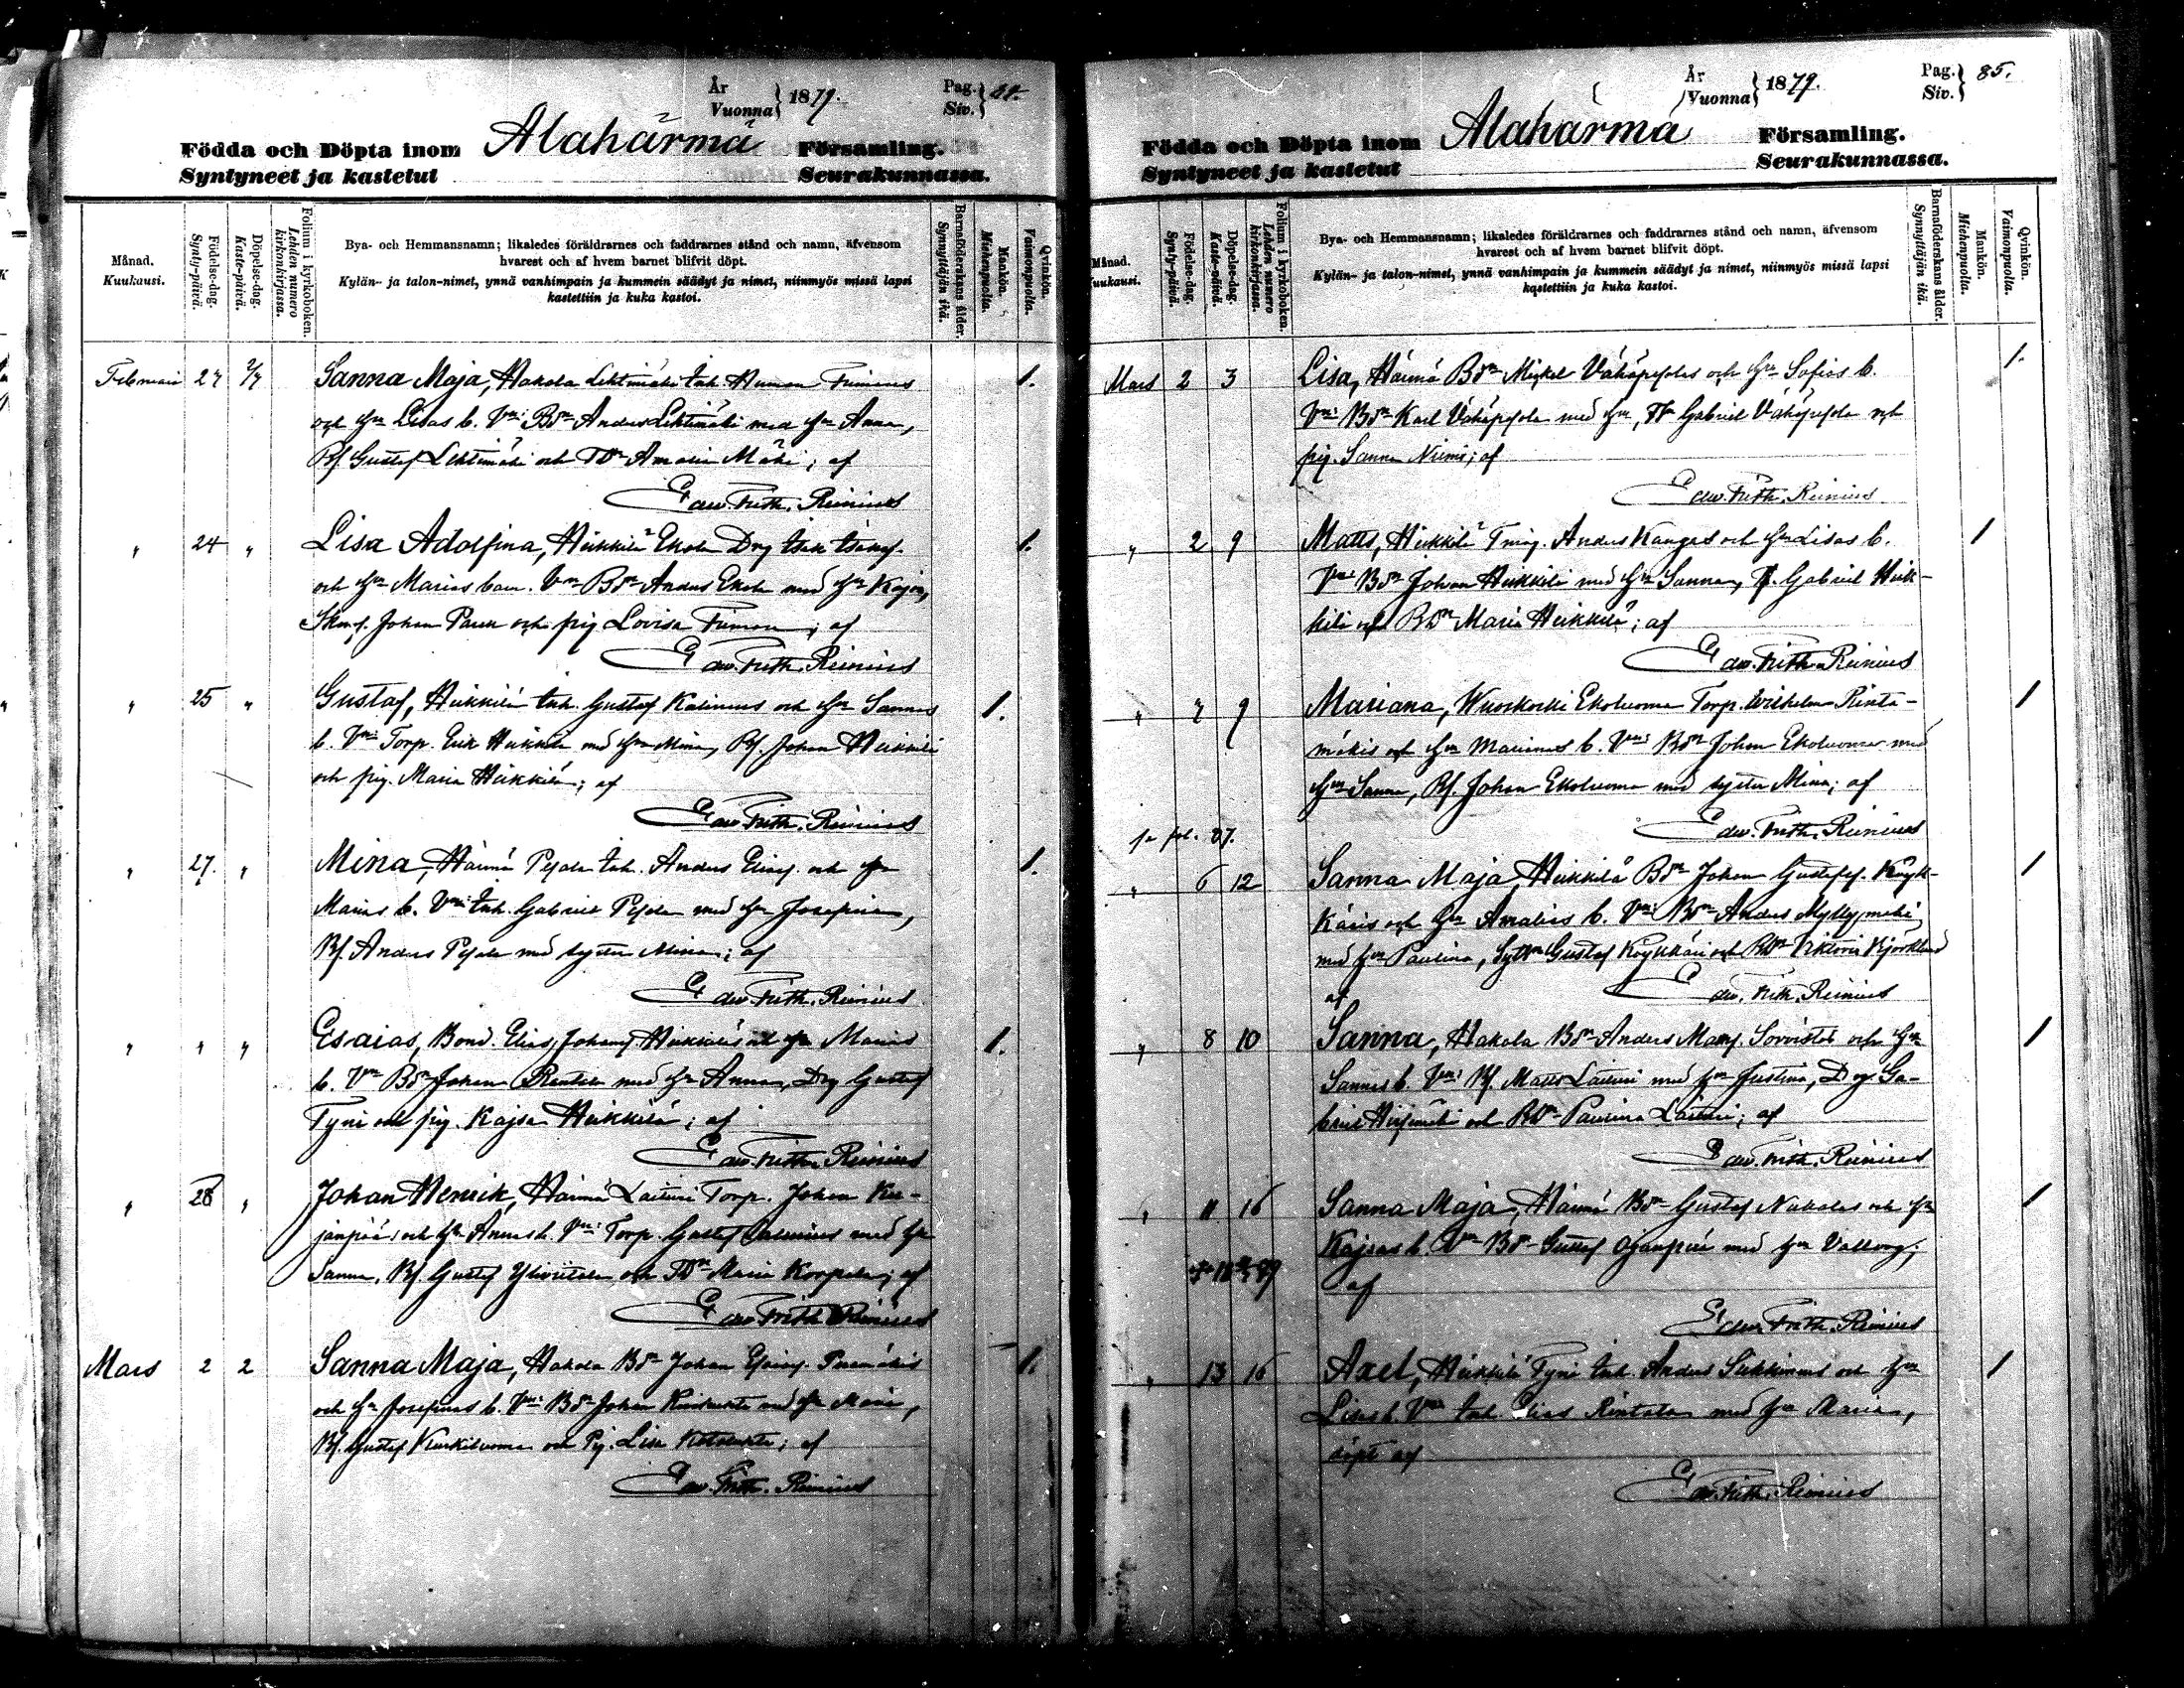 År
Vuonna } 1879.
Pag.
Siv. } 84.
Födda och Döpta inom Alahärmä Församling.
Syntyneet ja kastetut Seurakunnassa.
Månad.
Kuukausi.
Födelse-dag.
Synty-päivä.
Döpelse-dag.
Kaste-päivä.
Folium i kyrkoboken.
Lehden numero kirkonkirjassa.
Bya- och Hemmansnamn; likaledes föräldrarnes och faddrarnes stånd och namn, äfvensom
hvarest och af hvem barnet blifvit döpt.
Kylän- ja talon-nimet, ynnä vanhimpain ja kummein säädyt ja nimet, niinmyös missä lapsi
kastettiin ja kuka kastoi.
Barnaföderskans ålder.
Synnyttäjän ikä.
Mankön.
Miehenpuolta.
Qvinkön.
Vaimonpuolta.
Februari 27 Sanna Maja, Hakola Lehtimäki Inh. Human 1.
och Hu Lisas b. Vn: Bdn Anders Lehtimäki med Hu Anna,
Bs. Gustaf Lehtimäki och TDr Amalia Mäki; af
Edv. Frith. Reinius
" 24 " Lisa Adolfina, Heikkilä Ekola Drg Isak Isaks. 1.
och Hu Marias barn. Vn Bdn Anders Ekola med Hu Kajsa,
Johan och pig Lovisa ; af
Edv. Frith. Reinius
" 25 " Gustaf, Heikkilä Inh. Gustaf Kalinius och Hu Sannas 1.
b. Vn Torp. Erik Heikkilä med Hu Mina, Bs. Johan Heikkilä
och pig. Maria Heikkilä; af
Edv. Frith. Reinius
" 27. " Mina, Härmä Pesola Inh. Anders och Hu 1.
Marias b. Vn: Inh. Gabriel Pesola med Hu Josefina,
Bs. Anders Pesola med syster Mina; af
Edv. Frith. Reinius
" " " Esaias, Bond. Elias Johans. Heikkiläs och Hu Marias 1.
b. Vn Bdn Johan Rentola med Hu Anna, Drg Gustaf
Tyni och pig. Kajsa Heikkilä; af
Edv. Frith. Reinius
" 28 " Johan Henrik, Härmä Laituri Torp. Johan
och Hu Annas b. Vn: Torp. Gustaf med Hu
Sanna, Bs. Gustaf Yliviitala och TDr Maria Korpela; af
Edv. Frith. Reinius
Mars 2 2 Sanna Maja, Hakola Bdn Johan 1.
och Hu Josefinas b. Vn: Bdn Johan med Hu Maria,
Bs. Gustaf Kurkiluoma och Pig. Lisa ; af
Edv. Frith. Reinius
År
Vuonna } 1879.
Pag.
Siv. } 85.
Födda och Döpta inom Alahärmä Församling.
Syntyneet ja kastetut Seurakunnassa.
Månad.
Kuukausi.
Födelse-dag.
Synty-päivä.
Döpelse-dag.
Kaste-päivä.
Folium i kyrkoboken.
Lehden numero kirkonkirjassa.
Bya- och Hemmansnamn; likaledes föräldrarnes och faddrarnes stånd och namn, äfvensom
hvarest och af hvem barnet blifvit döpt.
Kylän- ja talon-nimet, ynnä vanhimpain ja kummein säädyt ja nimet, niinmyös missä lapsi
kastettiin ja kuka kastoi.
Barnaföderskans ålder.
Synnyttäjän ikä.
Mankön.
Miehenpuolta.
Qvinkön.
Vaimonpuolta.
Mars 2 3 Lisa, Härmä Bdn Mickel Vähäpesolas och Hu Sofias b. 1.
Vn: Bdn Karl Vähäpesola med Hu, Gabriel Vähäpesola och
pig. Sanna Niemi; af
Edv. Frith. Reinius
" 2 9 Matts, Heikkilä Anders Kangas och Hu Lisas b. 1
Vn: Bdn Johan Heikkilä med Hu Sanna, Gabriel Heik-
kilä och BDr Maria Heikkilä; af
Edv. Frith. Reinius
" 7 9 Mariana, Wuoskoski Ekoluoma Torp. Wilhelm Rinta- 1
mäkis och Hu Marianas b. Vn: Bdn Johan Ekoluoma med
Hu Sanna, Bs. Johan Ekoluoma med syster Mina; af
Edv. Frith. Reinius
se fol. 87.
" 6 12 Sanna Maja, Heikkilä Bdn Johan Gustafss. Köyk- 1
käris och Hu Amalias b. Vn: Bdn Anders Myllymäki
med Hu Paulina, Gustaf Köykkäri och BDr Viktoria Björklund
af Edv. Frith. Reinius
" 8 10 Sanna, Hakola Bdn Anders Sorvistos och Hu 1
Sannas b. Vn: Bs. Matts Laituri med Hu Justina, Drg Ga-
briel och BDr Paulina Laituri; af
Edv. Frith. Reinius
" 11 16 Sanna Maja, Härmä Bdn Gustaf Nukalas och Hu 1
Kajsas b. Vn Bdn Gustaf Ojanperä med Hu Valborg;
af
Edv. Frith. Reinius
" 13 16 Axel, Heikkilä Tyni Inh. Anders och Hu 1
Lisas b. Vn: Inh. Elias Rintala med Hu Maria,
döpt af
Edv. Frith. Reinius